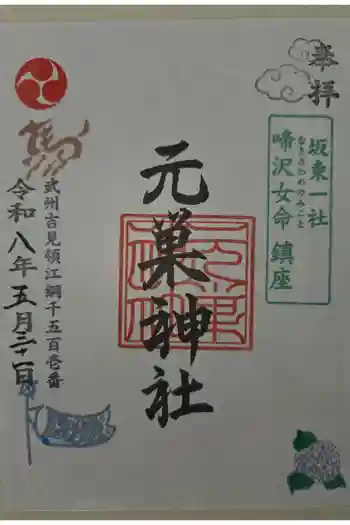 奉拝
坂東一社
啼沢女命 鎮座
なきさわめのみこと
元巣神社
馬
武州吉見領江綱千五百壱番
令和八年五月三十一日